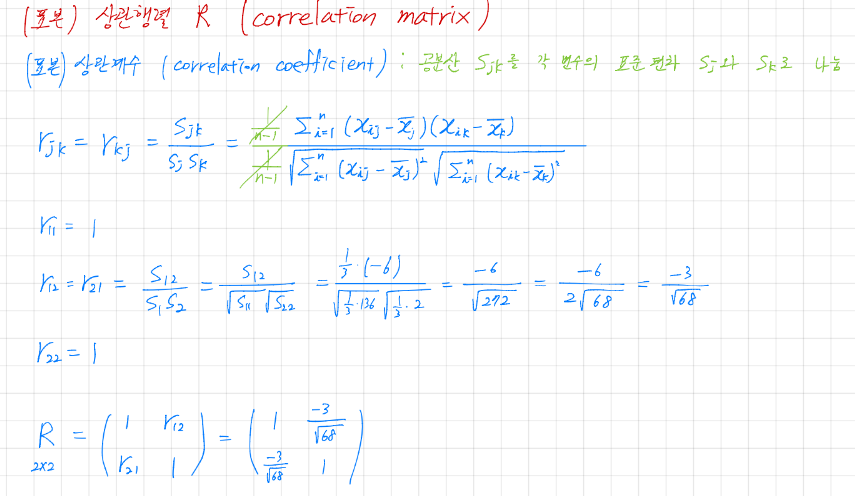 (표본) 상관행렬 R (correlation matrix)
(표본) 상관계수 (correlation coefficient) : 공분산 S_jk를 각 변수의 표준편차 S_j와 S_k로 나눔
r_jk = r_kj = S_jk / (S_j S_k) = (1/(n-1) Σ_{i=1}^{n} (x_ij - x̄_j)(x_ik - x̄_k)) / (1/(n-1) √(Σ_{i=1}^{n} (x_ij - x̄_j)²) √(Σ_{i=1}^{n} (x_ik - x̄_k)²))
r_11 = 1
r_12 = r_21 = S_12 / (S_1 S_2) = S_12 / (√S_11 √S_22) = (1/3 · (-6)) / (√(1/3 · 136) √(1/3 · 2)) = -6/√272 = -6/(2√68) = -3/√68
r_22 = 1
R = ( 1 r_12 ) = ( 1 -3/√68 )
2x2 ( r_21 1 ) ( -3/√68 1 )